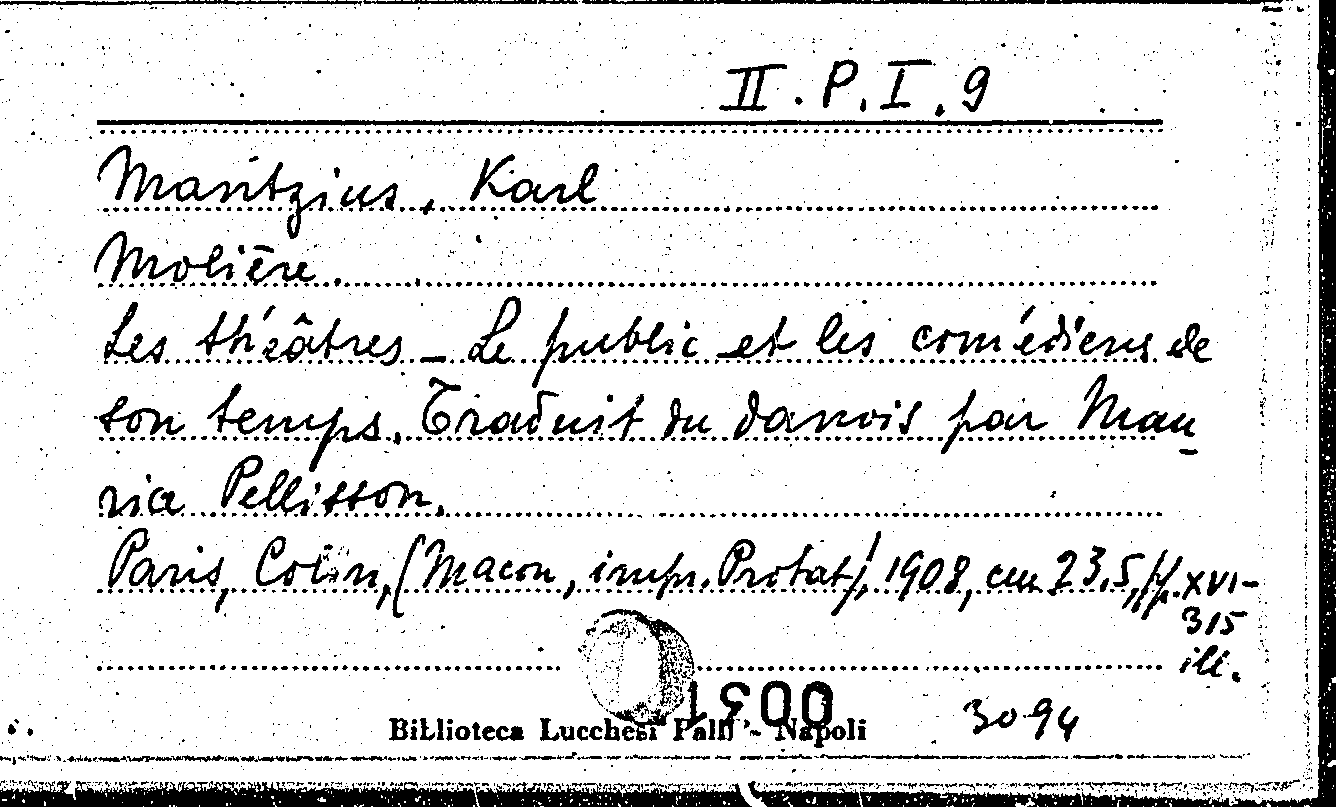 II. P. I. 9
Mantzius, Karl
Molière.
Les théâtres - Le public et les comédiens de
son temps. Traduit du danois par Mau-
rice Pellisson.
Paris, Colin, (Macon, impr. Protat), 1908, cm 23.5, pp. XVI-
315
ill.
Biblioteca Lucchesi Palli - Napoli
3094